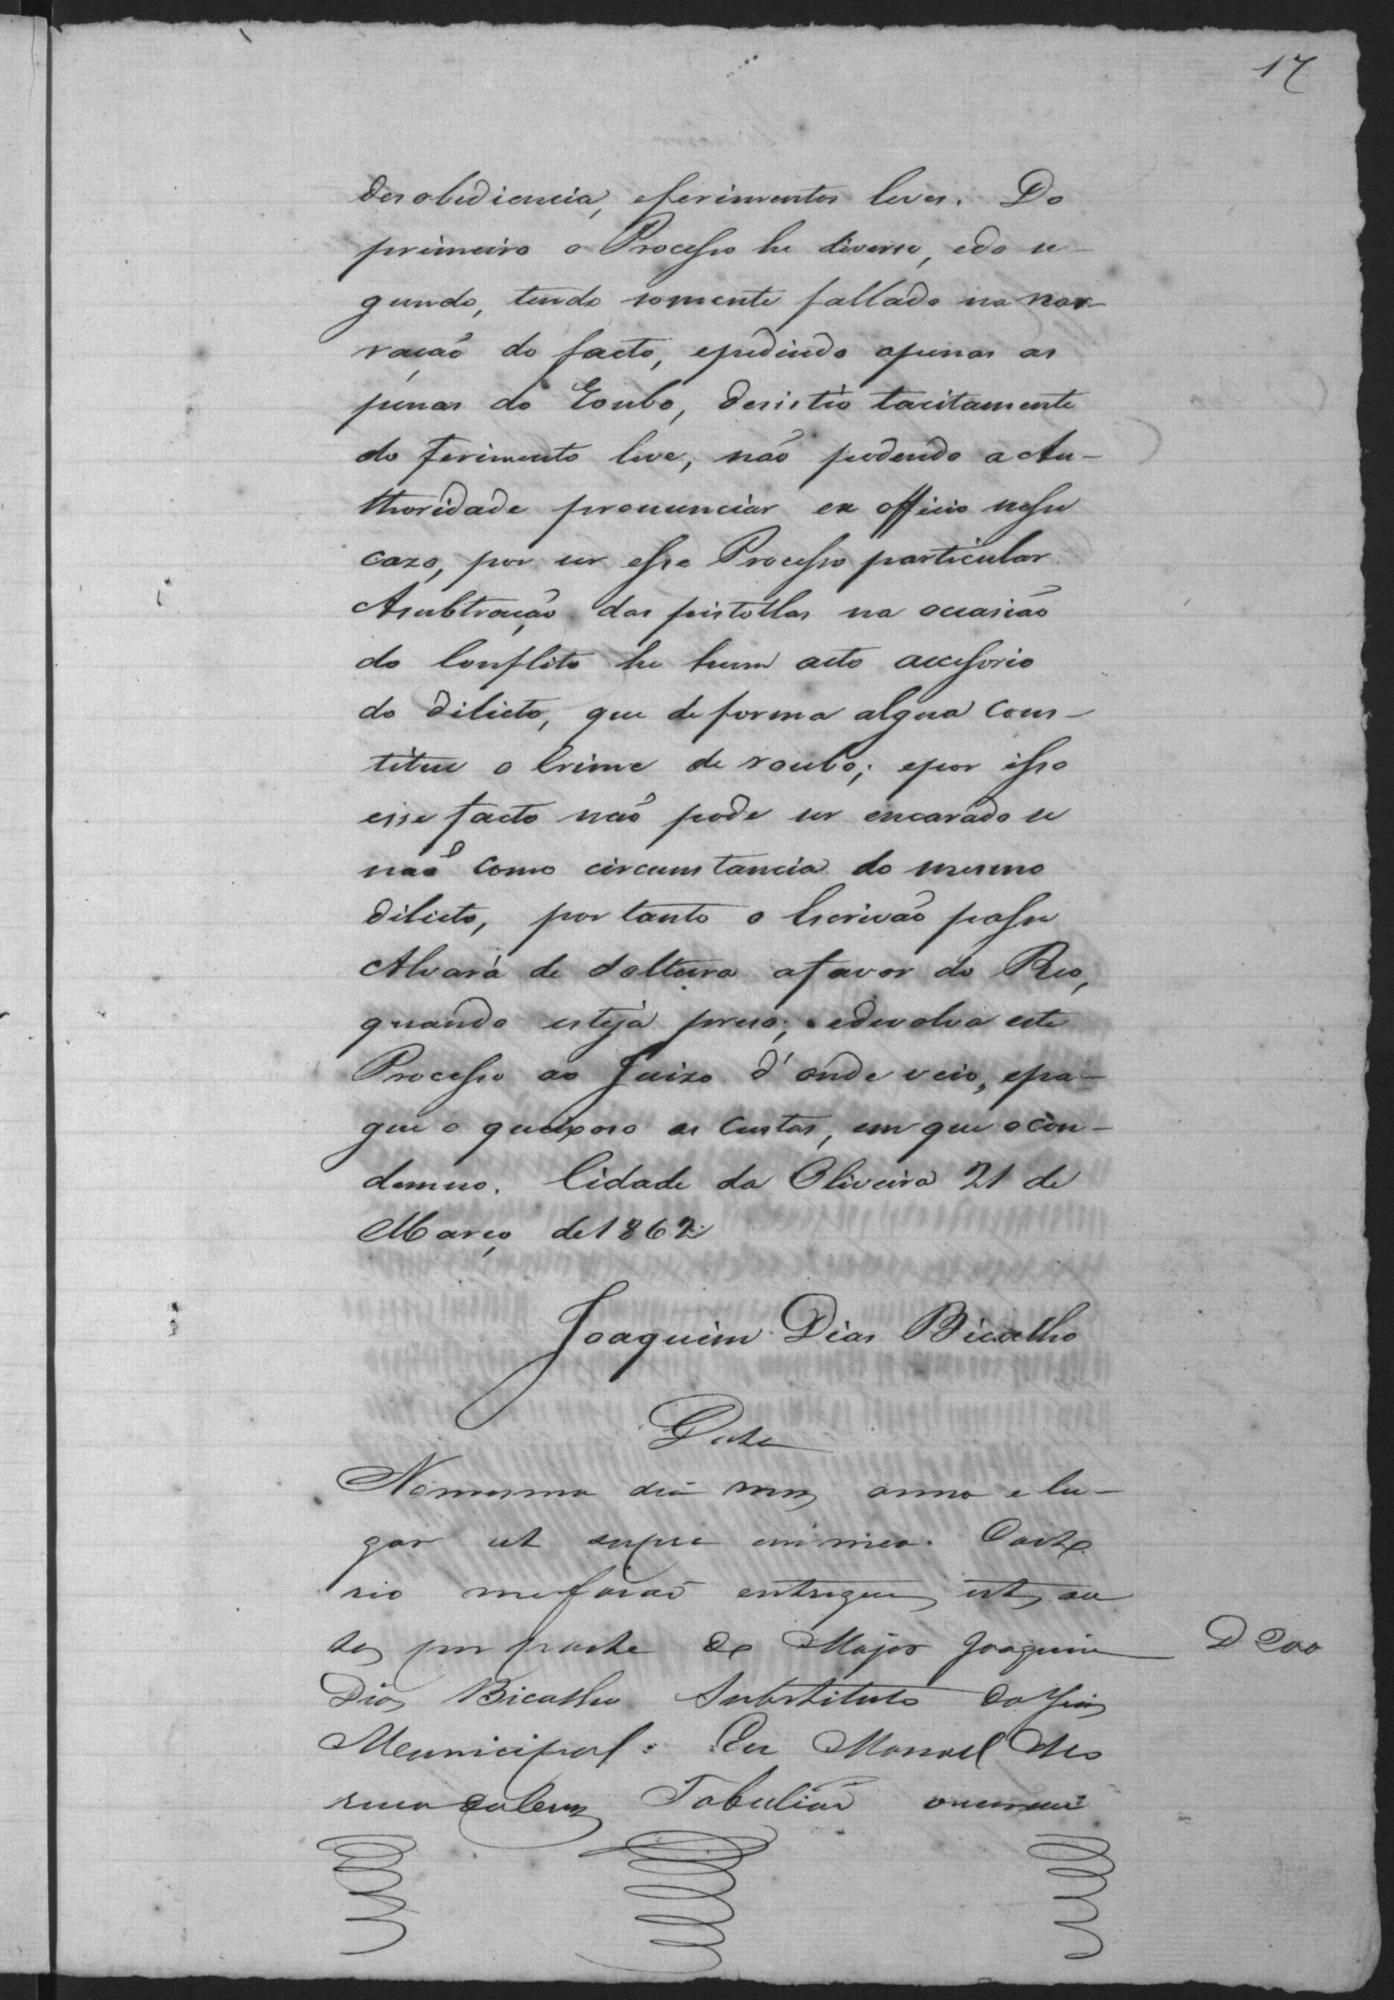 17
desobediencia, eferimentos leves. Do
primeiro o Processo he diverso, edo se-
gundo, tendo somente fallado na nar-
ração do facto, epedindo apenas as
penas do Roubo, desistio tacitamente
do ferimento leve, não podendo a Au-
thoridade pronunciar ex officio nesse
cazo, por ser esse Processo particular.
Asubtração das pistollas na occasião
do Conflito he hum acto accessorio
do dilicto, que de forma algua cons-
titue o Crime de roubo; epor isso
esse facto não pode ser encarado se
não como circumstancia do mesmo
dilicto, por tanto o Escrivão passe
Alvará de Soltura afavor do Reo,
quando esteja preso; edevolva este
Processo ao Juizo d'onde veio, epa-
gue o queixoso as Custas, em que ocon-
demno. Cidade da Oliveira 21 de
Março de 1862
Joaquim Dias Bicalho
Data
Nomesmo dia mez anno e lu-
gar ut supra em meo Carto
rio meforão entregues estes au
tos por parte do Major Joaquim
D 200
Dias Bicalho Substituto do Juiz
Municipal: Eu Manoel
Tabelião